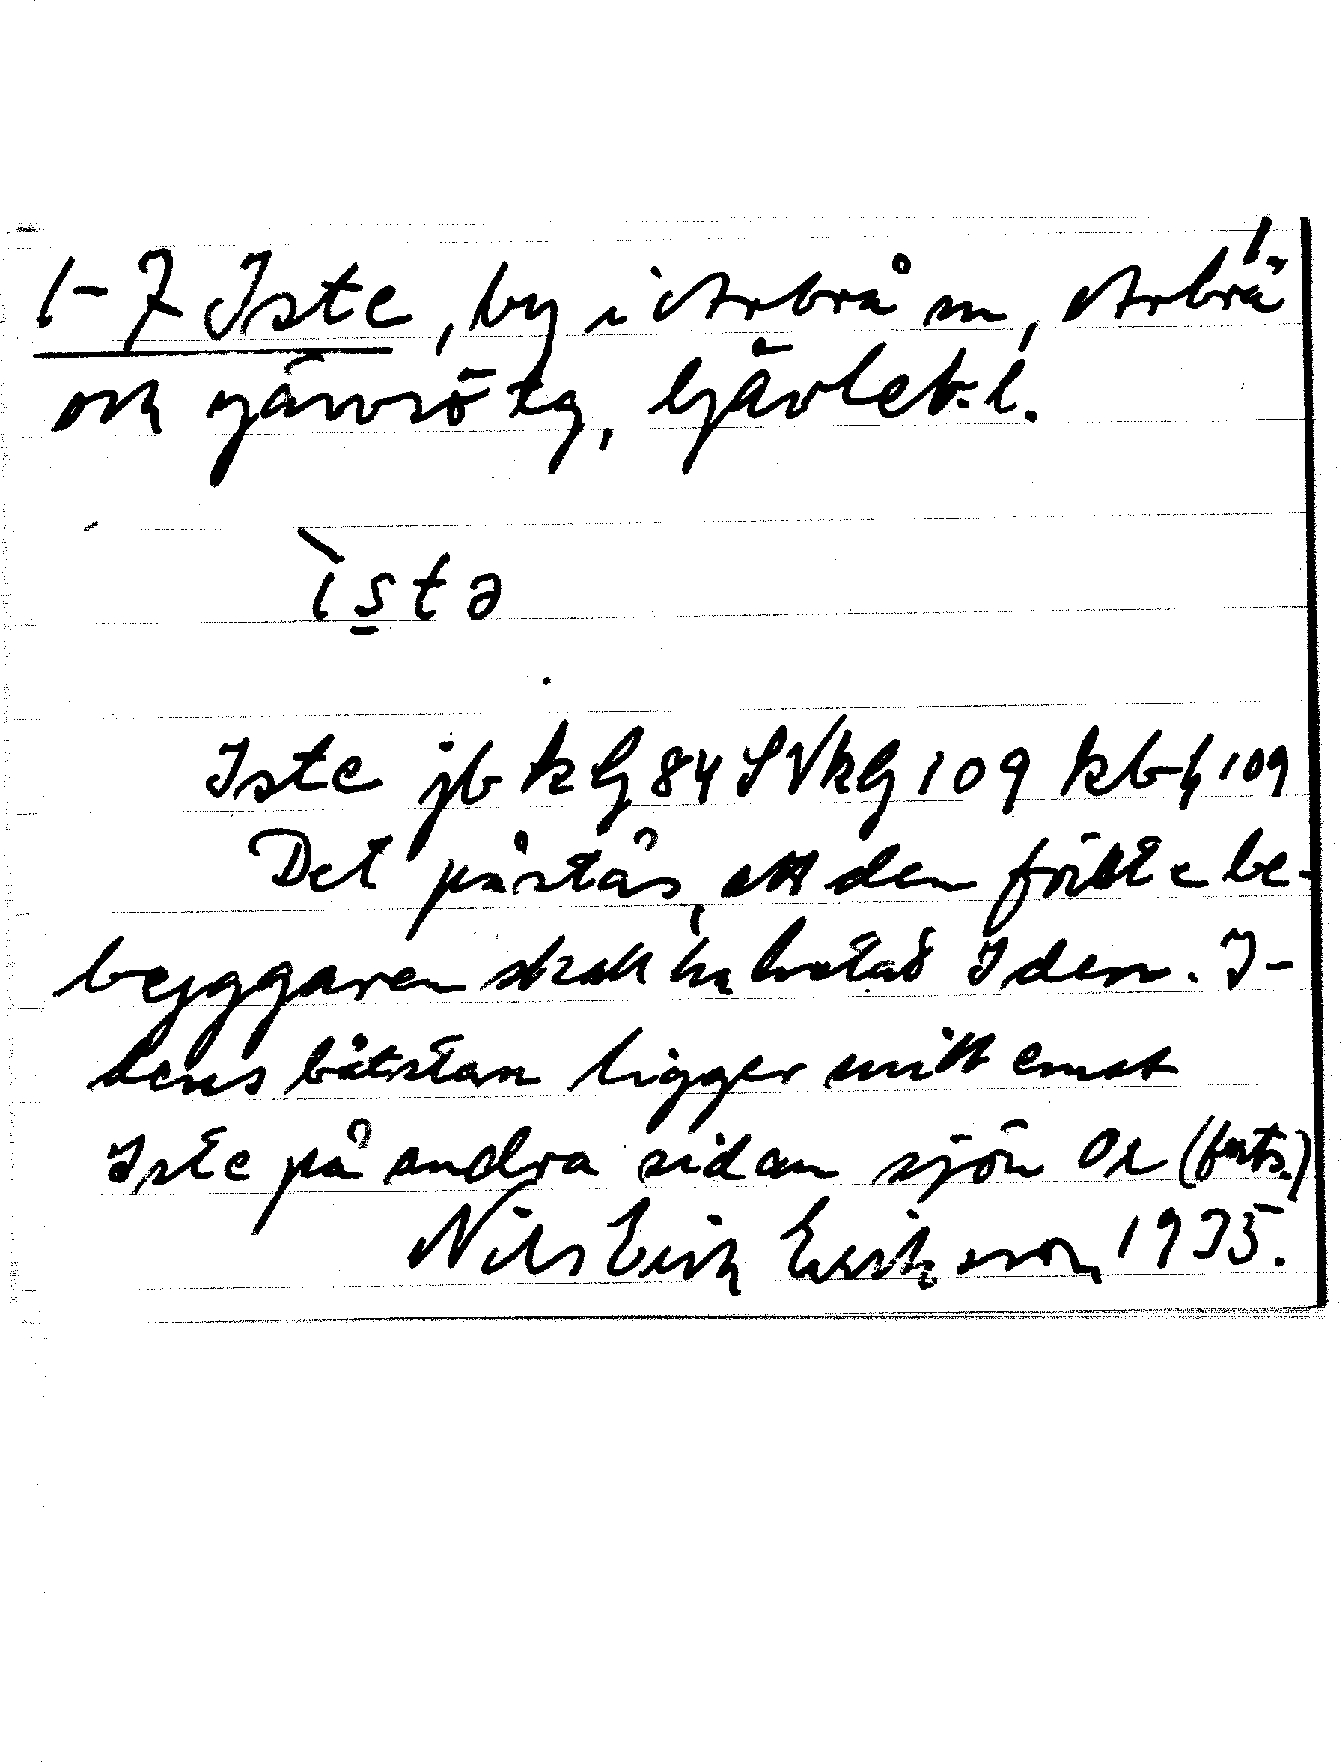 1.
1-7 Iste, by i Arbrå sn, Arbrå
och Järvsö tg, Gävleb. l.
ìs̲tə
Iste jb kG 84 SVkG 109 kb G 109
Det påstås, att den förste be-
byggaren skall ha hetat Iden. I-
dens båtstan ligger mitt emot
Iste på andra sidan sjön Or (forts.)
Nils Erik Eriksson, 1935.